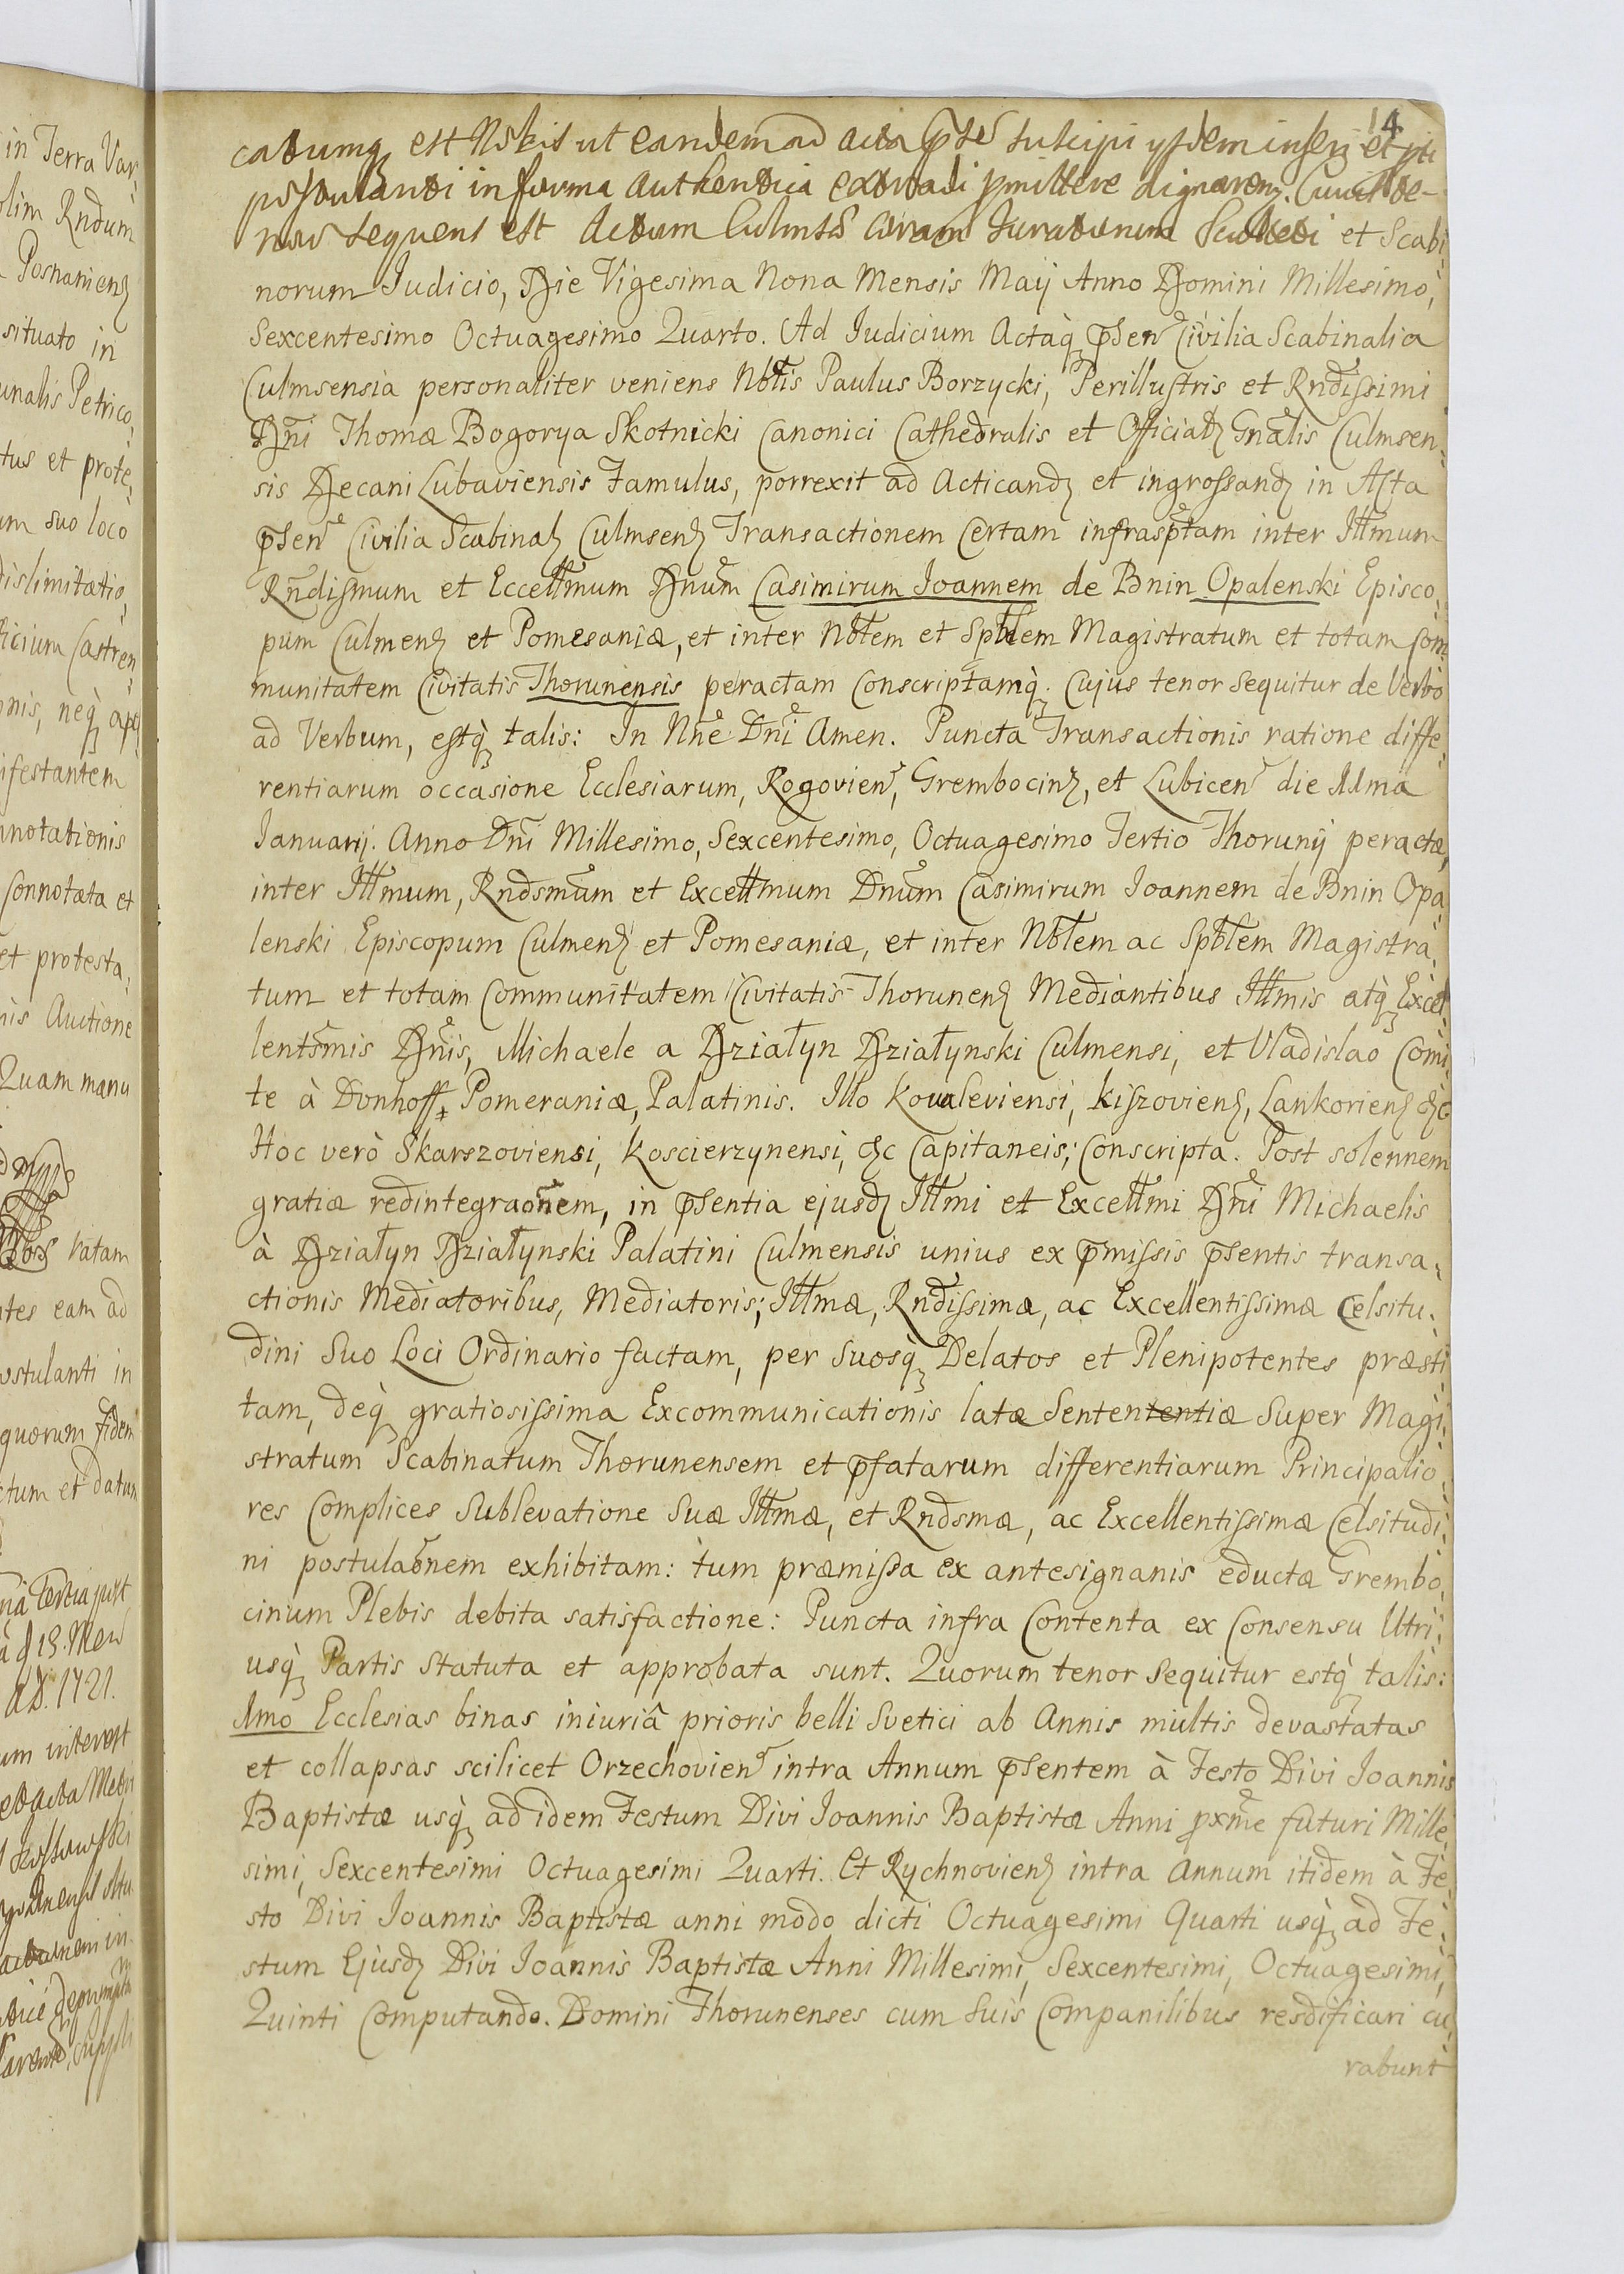 in Terra Var
olim Rndum
Posnaniens
situato in
unalis Petrico
tus et prote
um suo loco
dislimitatio
ficium Castren
nis, neq
ifestantem
nnotationis
Connotata et
et protesta
nis Auctione
Quam manu
ratam
tes eam ad
ostulanti in
quorum fidem
ctum et datum
AD. 1721.
um interest
14
catumq est Nobis ut eandem ad acta pnte suscipi ysdem inseri et
postulanti in forma authentica extradi pmittere dignarem. Cuius te-
nor sequens est Actum Culmsae coram Iuratorum Sculteti et Scabi
norum Iudicio, Die Vigesima Nona Mensis Maij Anno Domini Millesimo,
Sexcentesimo Octuagesimo Quarto. Ad Iudicium Actaq psen Civilia Scabinalia
Culmsensia personaliter veniens Nbtlis Paulus Borzycki, Perillustris et Rndissimi
Dni Thomæ Bogorya Skotnicki Canonici Cathedralis et Officialis Gnalis Culmsen
sis Decani Lubaviensis Famulus, porrexit ad Acticand et ingrossand in Asta
psen Civilia Scabinal Culmsen Transactionem Certam infrasptam inter Illmum
Rndismum et Eccellmum Dnum Casimirum Ioannem de Bnin Opalenski Episco
pum Culmens et Pomesaniæ, et inter Nbtem et Spbtlem Magistratum et totam Com
munitatem Civitatis Thorunensis peractam Conscriptamq. Cujus tenor Sequitur de Verbo
ad Verbum, estq talis: In Nne Dni Amen. Puncta Transactionis ratione diffe
rentiarum occasione Ecclesiarum, Rogovien, Grembocin, et Lubicen die 11ma
Ianuarij. Anno Dni Millesimo, Sexcentesimo, Octuagesimo Tertio Thorunij peractæ,
inter Illmum, Rndsmum et Excellmum Dnum Casimirum Ioannem de Bnin Opa
lenski Episcopum Culmens et Pomesaniæ, et inter Nbtlem ac Spbtlem Magistra
tum et totam Communitatem Civitatis Thorunens Mediantibus Illmis atq Excel
lentsmis Dnis, Michaele a Działyn Działynski Culmensi, et Vladislao Comi
te à Donhoff Pomeraniæ, Palatinis. Illo Kovaleviensi, Kiszoviens, Lankoriens &c
Hoc verò Skarszoviensi, Koscierzynensi, &c Capitaneis; Conscripta. Post solennem
gratiæ redintegraonem, in psentia ejusd Illmi et Excellmi Dni Michaelis
à Działyn Działynski Palatini Culmensis unius ex pmissis psentis transa
ctionis Mediatoribus, Mediatoris; Illmæ, Rndissimæ, ac Excellentissimæ Celsitu
dini Suo Loci Ordinario factam, per Suosq Delatos et Plenipotentes præsti
tam, deq gratiosissima Excommunicationis latæ Sentententiæ Super Magi
stratum Scabinatum Thorunensem et pfatarum differentiarum Principalio
res Complices Sublevatione Suæ Illmæ, et Rndsmæ, ac Excellentissimæ Celsitudi
ni postulaonem exhibitam: tum præmissa ex antesignanis eductæ Grembo
cinum Plebis debita satisfactione: Puncta infra Contenta ex Consensu Utri
usq Partis Statuta et approbata sunt. Quorum tenor Sequitur estq talis:
1mo Ecclesias binas iniuriâ prioris belli Svetici ab Annis multis devastatas
et collapsas scilicet Orzechovien intra Annum psentem à Festo Divi Ioannis
Baptistæ usq ad idem Festum Divi Ioannis Baptistæ Anni pxme futuri Mille
simi, Sexcentesimi Octuagesimi Quarti. Et Rychnoviens intra Annum itidem à Fe
sto Divi Ioannis Baptistæ anni modo dicti Octuagesimi Quarti usq ad Fe
stum Ejusd Divi Ioannis Baptistæ Anni Millesimi, Sexcentesimi, Octuagesimi,
Quinti Computando. Domini Thorunenses cum Suis Companilibus resdificari cu
rabunt